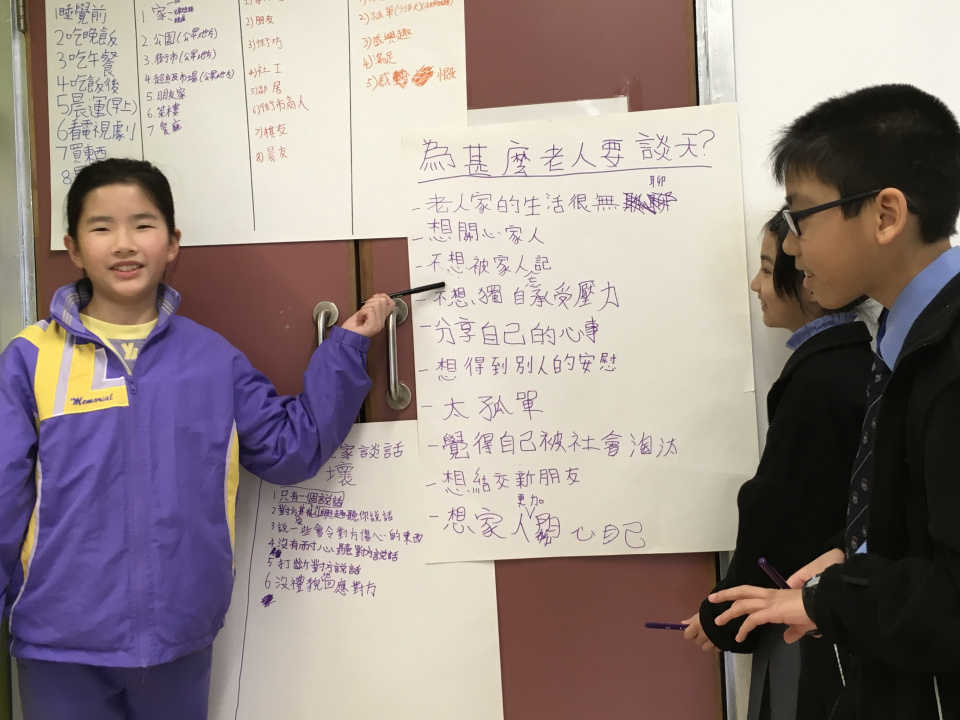 睡覺前
2吃晚飯
3吃午餐
4吃飯後
5晨運(早上)
6看電視劇
7買東西
1. 家
2. 公園(公眾地方)
3. 街市(公眾地方)
4. 超級市場(公眾地方)
5. 朋友家
6. 茶樓
7 餐廳
2)朋友
3)街坊
4)社工
5)鄰居
6)街市商人
7)棋友
8)晨友
3)感興趣
4)滿足
為甚麼老人要談天?
- 老人家的生活很無聊
- 想關心家人
- 不想被家人忘記
- 不想獨自承受壓力
- 分享自己的心事
- 想得到別人的安慰
- 太孤單
- 覺得自己被社會淘汰
- 想結交新朋友
- 想家人更加關心自己
家談話
壞
1 只有一個說話
3 說一些會令對方傷心的東西
4 沒有耐心聽對方說話
5 打斷對方說話
6 沒禮貌回應對方
Memorial